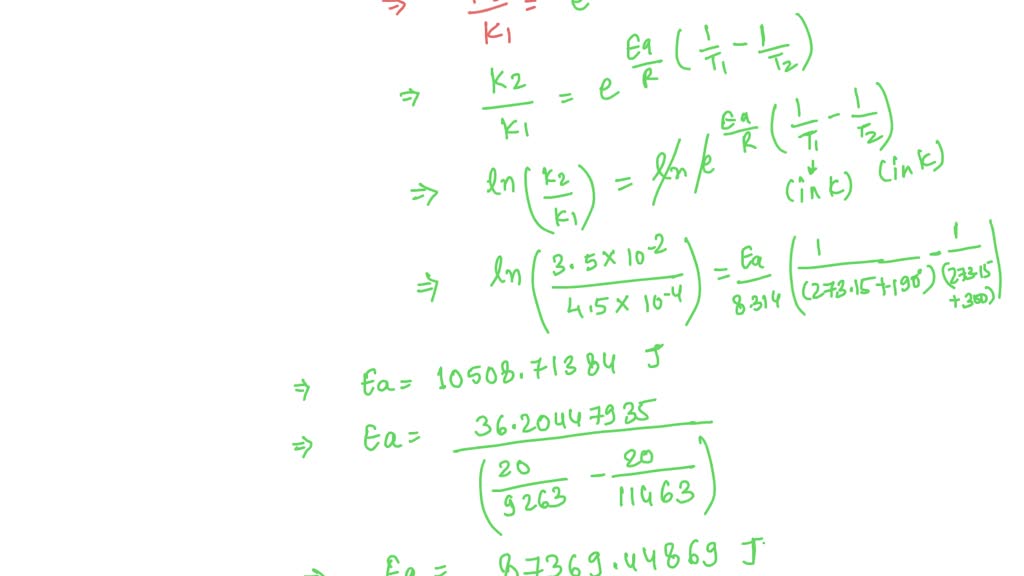 ⇒ K1 = e
⇒ K2/K1 = e^(Ea/R (1/T1 - 1/T2))
⇒ ln(K2/K1) = ln e^(Ea/R (1/T1 - 1/T2))
(in K) (in K)
⇒ ln(3.5 × 10^-2 / 4.5 × 10^-4) = Ea/8.314 (1/(273.15+190) - 1/(273.15+300))
⇒ Ea = 10508.71384 J
⇒ Ea = 36.20447935 / (20/9263 - 20/11463)
⇒ Ea = 87369.44869 J